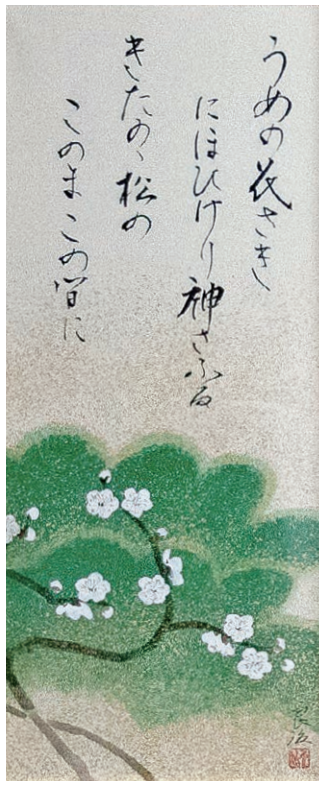 うめの花さき
にほひけり神さふる
きたのゝ松の
このまこの間に